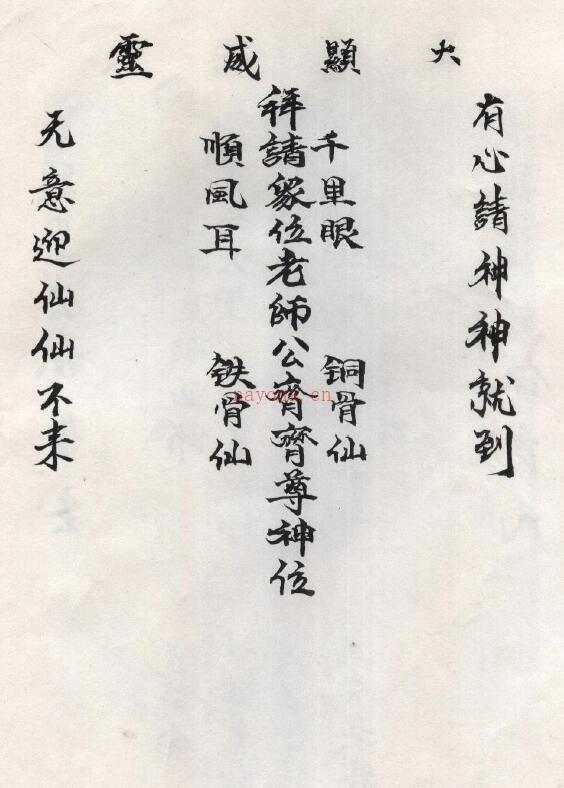 火顯威靈
有心請神神就到
千里眼 铜骨仙
拝請衆位老師公齊齊尊神位
順風耳 铁骨仙
无意迎仙仙不来
nayona.cn